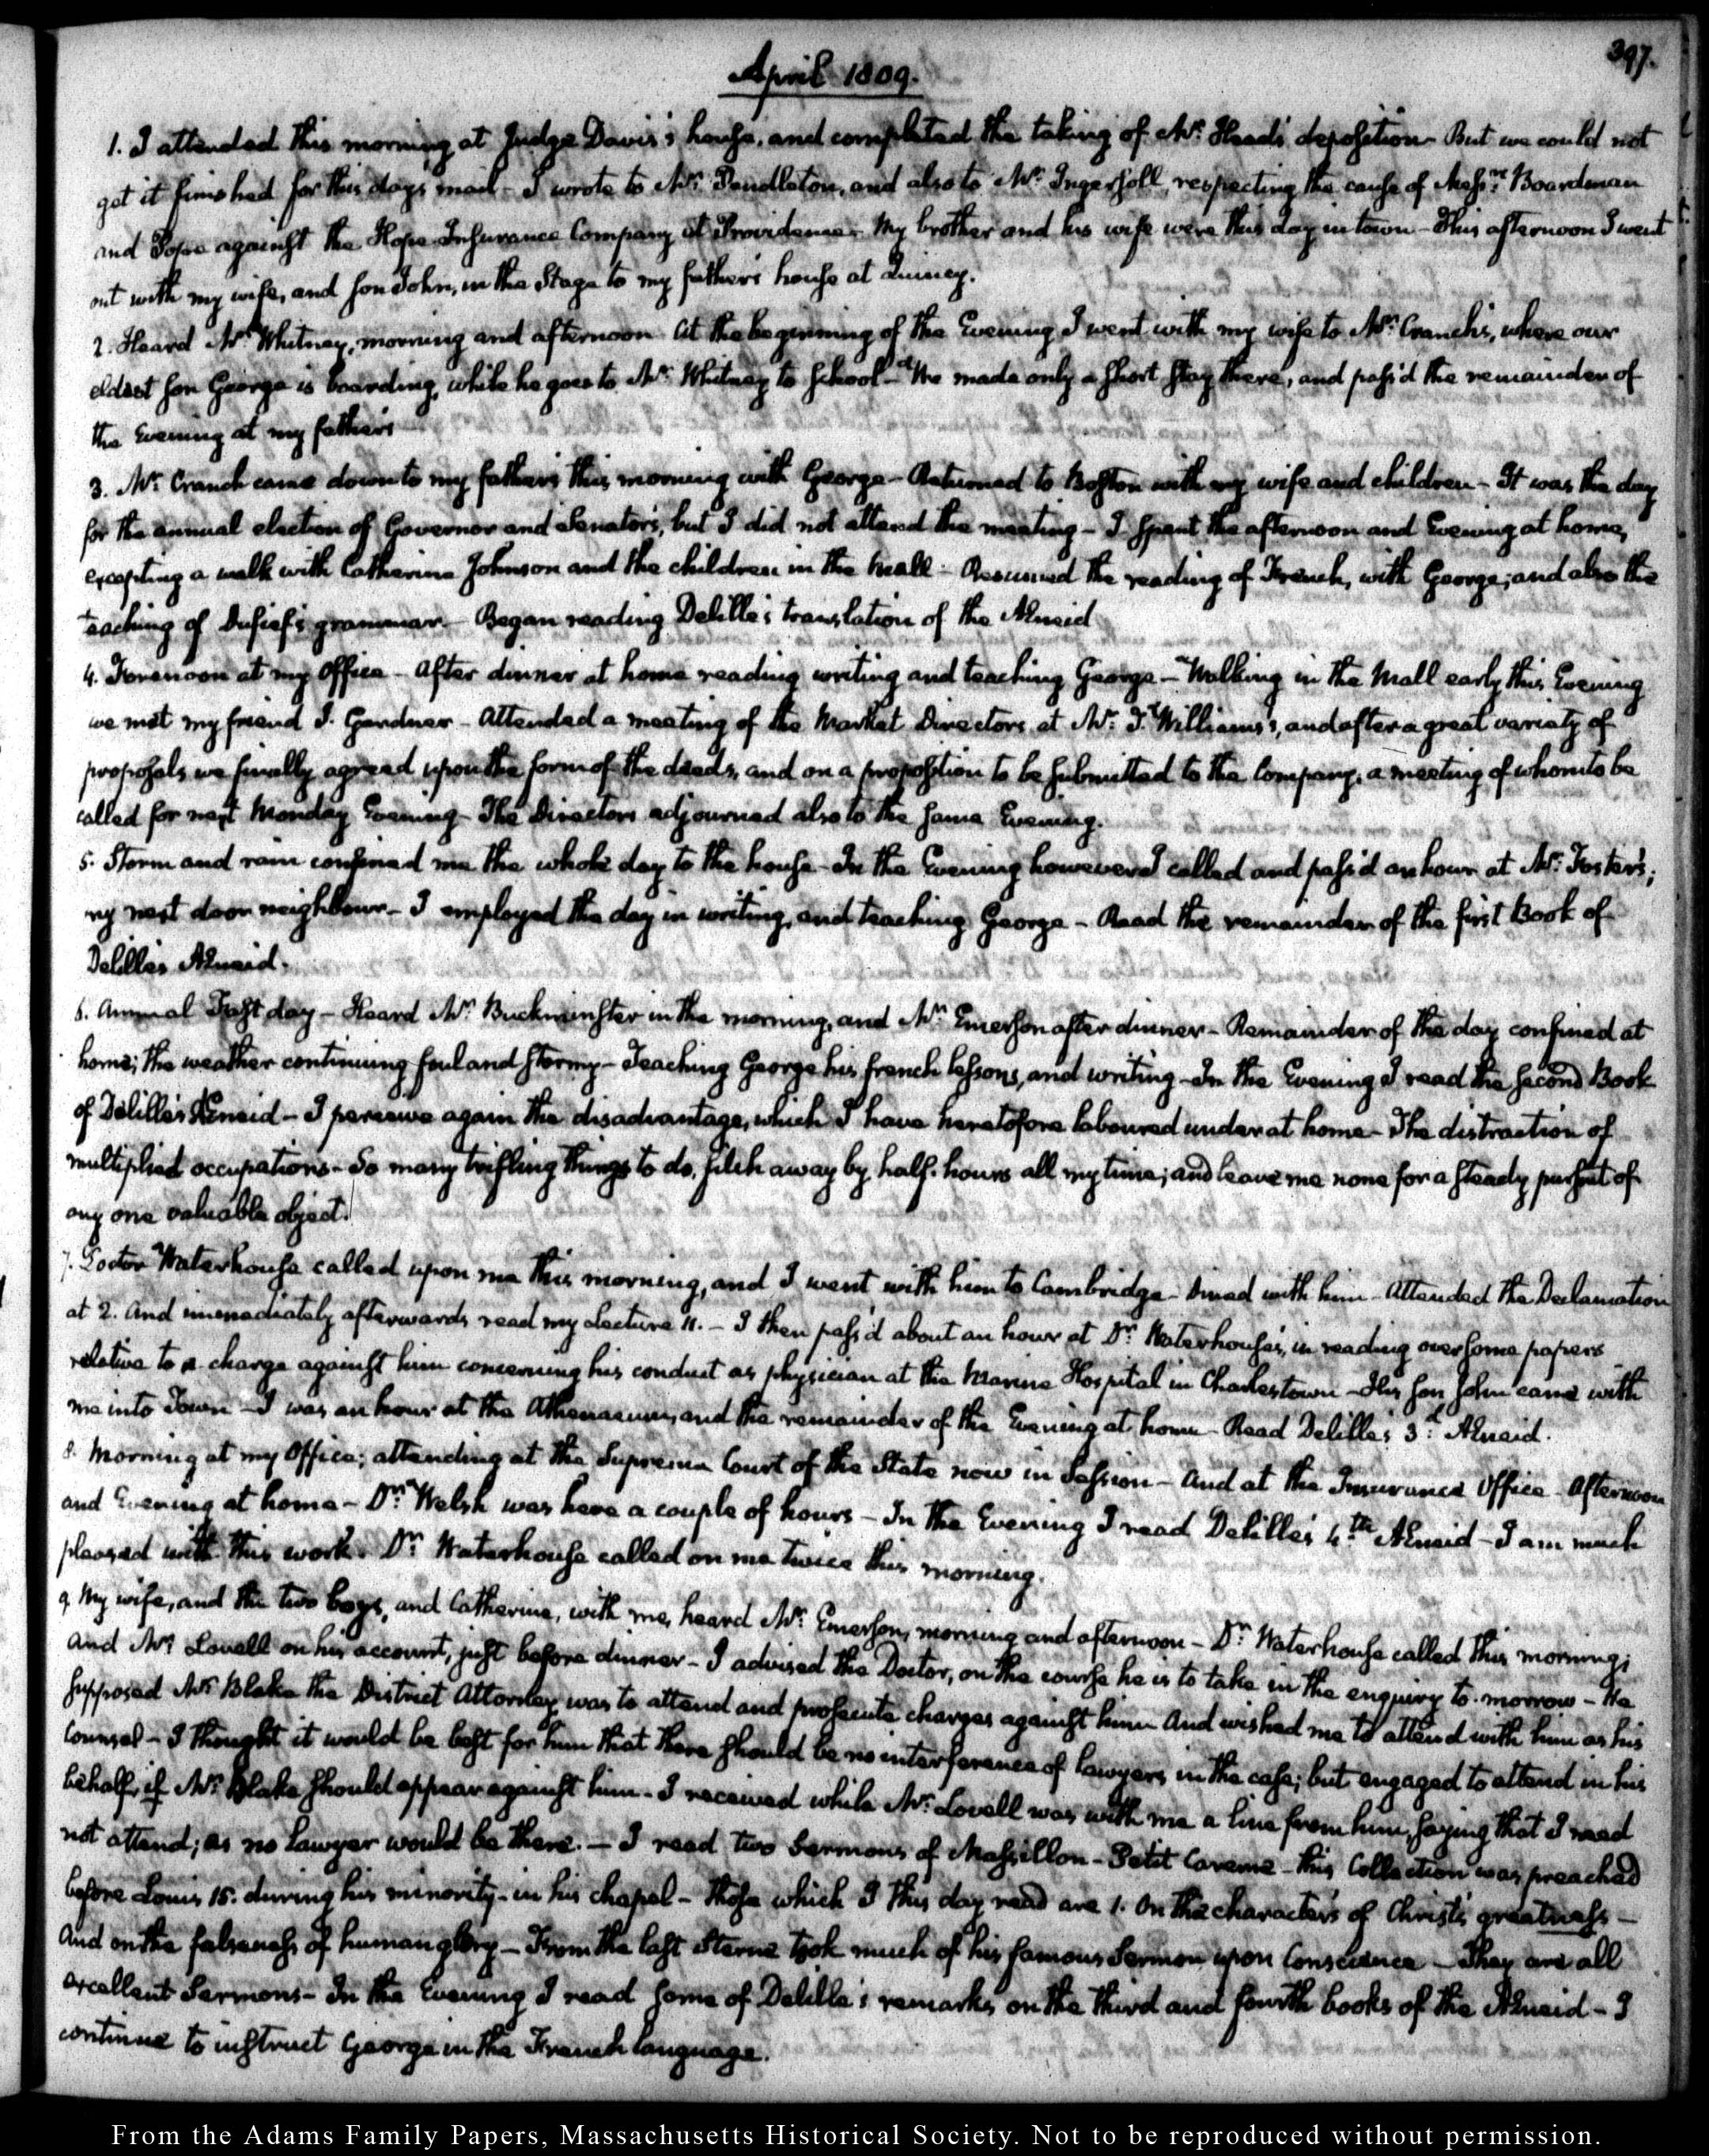 397.
April 1809.
1. I attended this morning at Judge Davis's house, and completed the taking of Mr. Head's deposition— But we could not
get it finished for this day's mail— I wrote to Mr. Pendleton, and also to Mr. Ingersoll, respecting the cause of Messrs. Boardman
and Pope against the Hope Insurance Company at Providence— My brother and his wife were this day in town— This afternoon I went
out with my wife, and son John, in the Stage to my father's house at Quincy.
2. Heard Mr. Whitney, morning and afternoon— At the beginning of the Evening I went with my wife to Mr. Cranch's, where our
eldest son George is boarding, while he goes to Mr. Whitney to school— We made only a short stay there, and pass'd the remainder of
the Evening at my father's—
3. Mr. Cranch came down to my father's this morning with George— Returned to Boston with my wife and children— It was the day
for the annual election of Governor and Senators, but I did not attend the meeting— I spent the afternoon and Evening at home,
excepting a walk with Catherine Johnson and the children in the Mall— Resumed the reading of French, with George; and also the
teaching of Dufief's grammar— Began reading Delille's translation of the Æneid
4. Forenoon at my Office— After dinner at home reading writing and teaching George— Walking in the Mall early this Evening
we met my friend J. Gardner— Attended a meeting of the Market Directors at Mr. T. Williams's, and after a great variety of
proposals we finally agreed upon the form of the deeds, and on a proposition to be submitted to the Company, a meeting of whom is to be
called for next Monday Evening— The Directors adjourned also to the same Evening.
5. Storm and rain confined me the whole day to the house— In the Evening however I called and pass'd an hour at Mr. Foster's,
my next door neighbour— I employed the day in writing, and teaching George— Read the remainder of the first Book of
Delille's Æneid.
6. Annual Fast day— Heard Mr. Buckminster in the morning, and Mr. Emerson after dinner— Remainder of the day confined at
home; the weather continuing foul and stormy— Teaching George his french lessons, and writing— In the Evening I read the second Book
of Delille's Æneid— I perceive again the disadvantage, which I have heretofore laboured under at home— The distraction of
multiplied occupations— So many trifling things to do, filch away by half-hours all my time; and leave me none for a steady pursuit of
any one valuable object.
7. Doctor Waterhouse called upon me this morning, and I went with him to Cambridge— Dined with him— Attended the Declamation
at 2. And immediately afterwards read my Lecture 11.— I then pass'd about an hour at Dr. Waterhouse's, in reading over some papers
relative to a charge against him concerning his conduct as physician at the Marine Hospital in Charlestown— His son John came with
me into Town— I was an hour at the Athenaeum, and the remainder of the Evening at home— Read Delille's 3d. Æneid.
8. Morning at my Office; attending at the Supreme Court of the State now in Session— And at the Insurance Office— Afternoon
and Evening at home— Dr. Welsh was here a couple of hours— In the Evening I read Delille's 4th Æneid— I am much
pleased with this work. Dr. Waterhouse called on me twice this morning.
9. My wife, and the two boys, and Catherine, with me, heard Mr. Emerson, morning and afternoon— Dr. Waterhouse called this morning;
and Mr. Lovell on his account, just before dinner— I advised the Doctor, on the course he is to take in the enquiry to-morrow— He
supposed Mr. Blake the District Attorney was to attend and prosecute charges against him And wished me to attend with him as his
Counsel— I thought it would be best for him that there should be no interference of lawyers in the case; but engaged to attend in his
behalf, if Mr. Blake should appear against him— I received while Mr. Lovell was with me a line from him, saying that I need
not attend; as no Lawyer would be there.— I read two Sermons of Massillon— Petit Careme— this Collection was preached
before Louis 15. during his minority— in his chapel— Those which I this day read are 1. On the characters of Christ's greatness—
And on the falseness of human glory— From the last Sterne took much of his famous Sermon upon Conscience— They are all
excellent Sermons— In the Evening I read some of Delille's remarks on the third and fourth books of the Æneid— I
continue to instruct George in the French language.
From the Adams Family Papers, Massachusetts Historical Society. Not to be reproduced without permission.